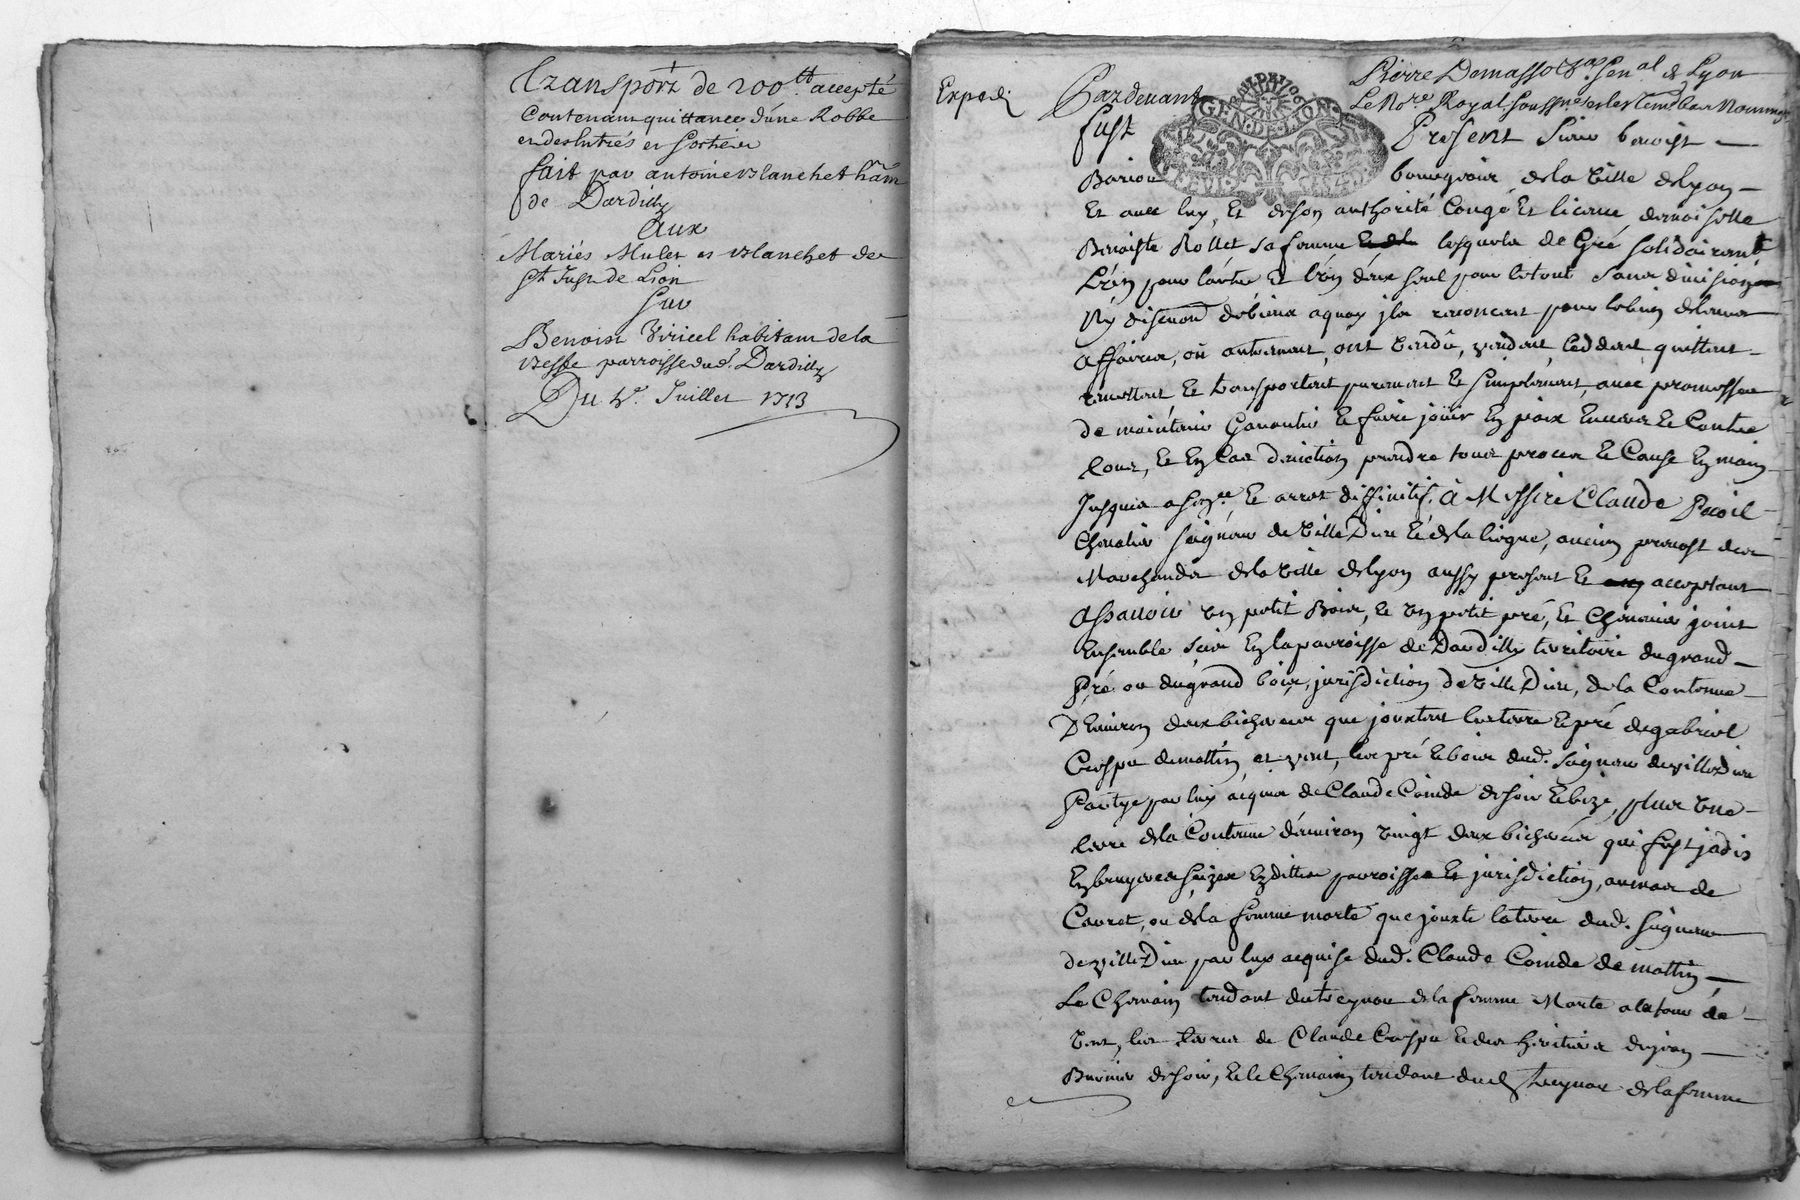 Transport de 200tt. accepté
Contenant quittance d'une Robbe
fait par antoine Blanchet han
de Dardilly
Aux
Mariés Mulet et Blanchet de
St Just de Lion
Sur
Benoist Viricel habitant de la
Besse parroisse dud. Dardilly
Du 4e. Juillet 1713
Exped
Pardevant
Pierre Demasso Gen al de Lyon
Le No.re Royal soussigné
fust
GEN. DE LION
Present Sieur benoist
bourgeois de la Ville de Lyon
Et avec luy, Et de son authorité Congé Et licence demoiselle
Benoiste Rollet sa femme lesquels de Gré solidairemt
L'un pour l'autre Et l'un d'eux seul pour le tout sans division
Ny discution de biens a quoy ils renoncent pour le bien de leurs
affaires, ont vendu, vendent, ceddent, quittent
remettent Et transportent purement Et simplement, avec promesse
de maintenir Garantir Et faire jouir En paix Envers Et Contre
tous, Et En Cas d'eviction prendre tous proces Et Cause En main
Jusques a Et arrest diffinitif. à Messire Claude Pecoil
Chevalier seigneur de VilleDieu Et de la liegue, ancien prevost des
Marchands de la Ville de Lyon aussy present Et acceptant
assavoir un petit Bois, Et un petit pré, Et Chenevier joint
Ensemble scis En la parroisse de Dardilly territoire du grand
Pré ou du grand bois, jurisdiction de VilleDieu, de la Contenue
D'Environ deux bicherées que jouxtent les terre Et pré de gabriel
Crespu de mattin et vent, les pré Et bois dud. Seigneur de villeDieu
Partye par luy acquis de Claude Coinde de soir Et bize, plus une
terre de la Contenue d'environ vingt deux bicherées qui fust jadis
En bruyeres scize En ditte parroisse Et jurisdiction, au mas de
Carret, ou de la femme morte que jouxte la terre dud. Seigneur
de villeDieu par luy acquise dud. Claude Coinde de mattin
Le Chemain tendant du treyvou de la femme Morte a la tour de
Vent, les terres de Claude Crespu Et des heritiers de jean
Burnier de soir, Et le Chemain tendant dud. treyvou de la femme